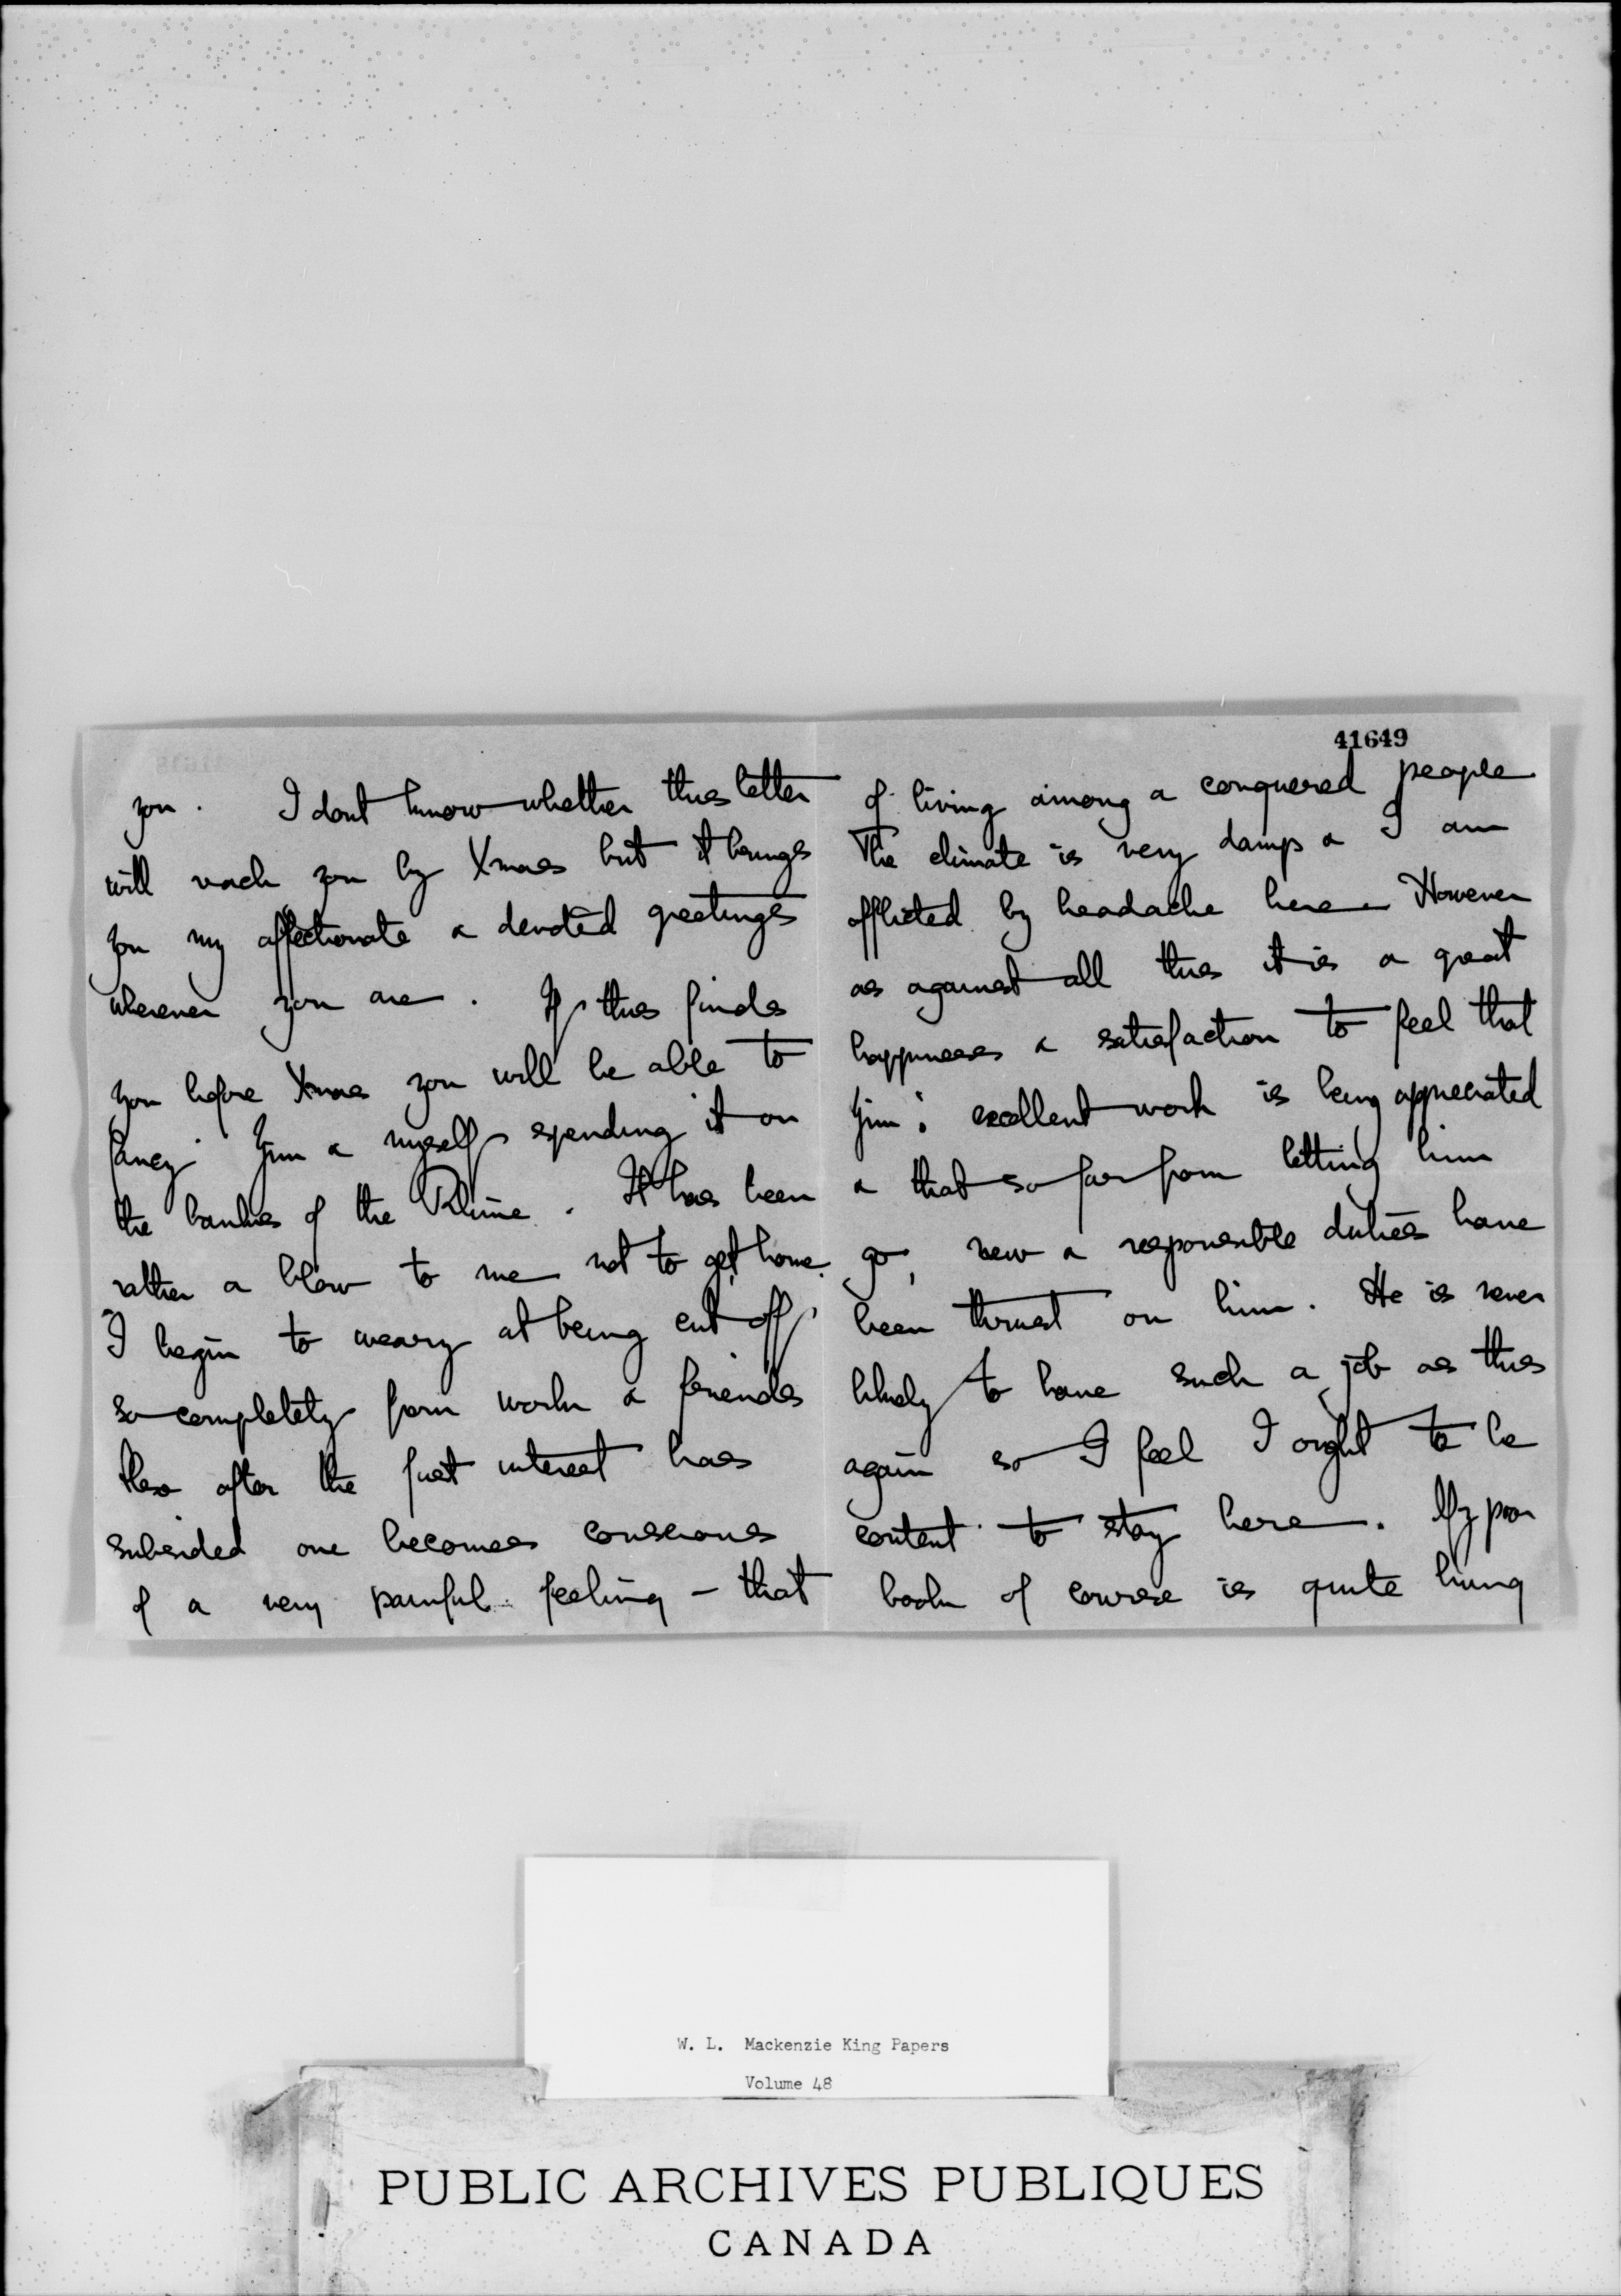 41649
you. I dont know whether this letter
will reach you by Xmas but it brings
you my affectionate & devoted greetings
wherever you are. If this finds
you before Xmas you will be able to
fancy Jim & myself spending it on
the banks of the Rhine. It has been
rather a blow to me not to get home.
I begin to weary at being cut off
so completely from work & friends
Also after the first interest has
subsided one becomes conscious
of a very painful feeling - that
of living among a conquered people
The climate is very damp & I am
afflicted by headache here. However
as against all this it is a great
happiness & satisfaction to feel that
Jim's excellent work is being appreciated
& that so far from letting him
go, new & responsible duties have
been thrust on him. He is never
likely to have such a job as this
again so I feel I ought to be
content to stay here. My poor
book of course is quite hung
W. L. Mackenzie King Papers
Volume 48
PUBLIC ARCHIVES PUBLIQUES
CANADA